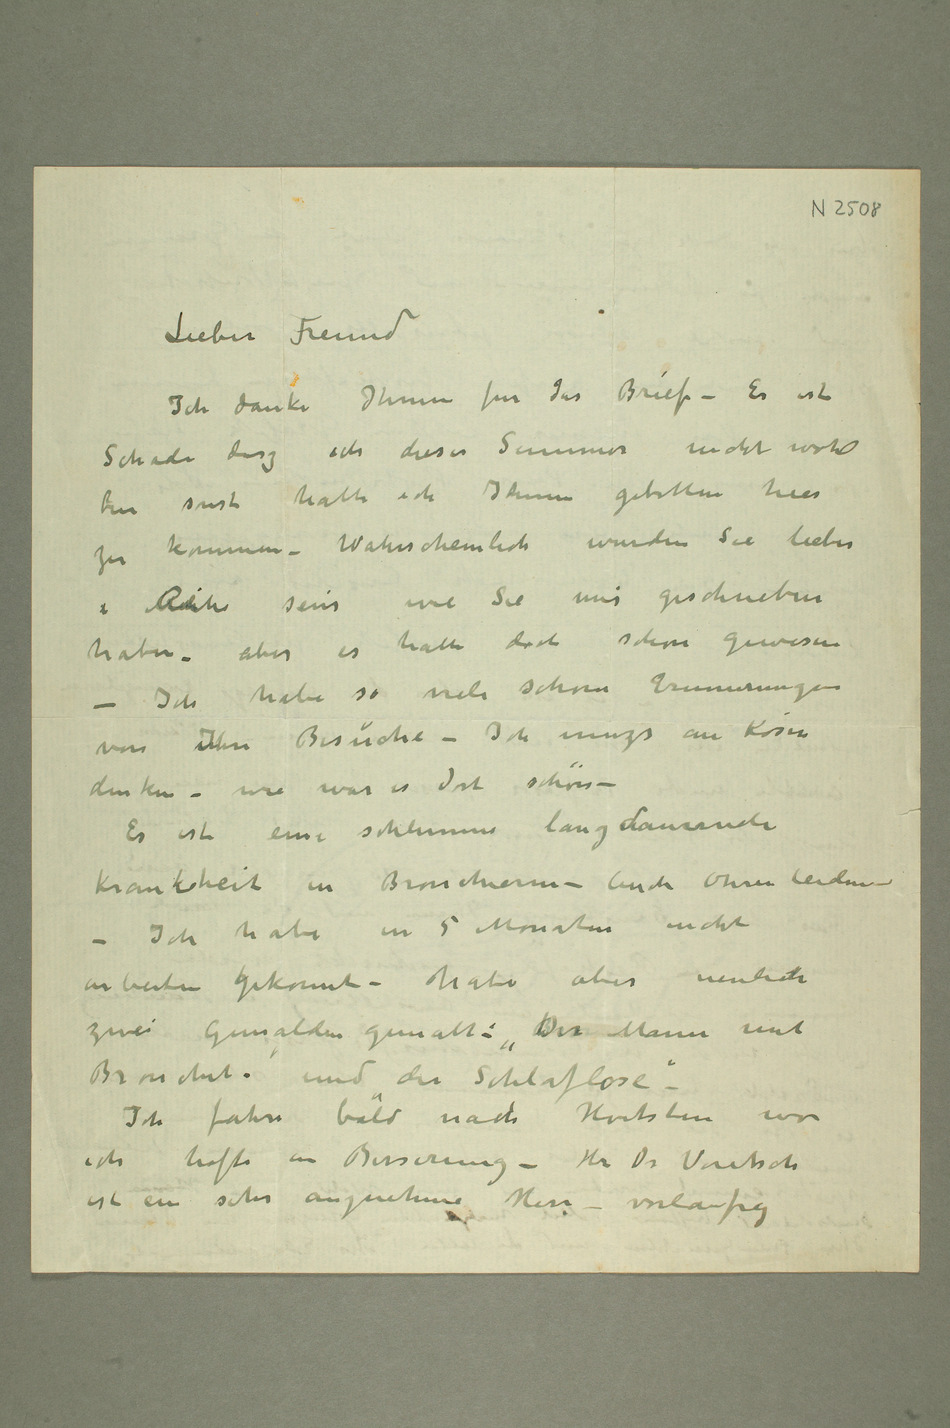 N 2508
Lieber Freund
Ich danke Ihnen fur Ihr Brief – Es ist
Schade dasz ich dieser Summer nicht wohl
bin sust hatte ich Ihnen gebetten hier
zu kommen – Wahrscheinlich wurden Sie lieber
i sein wie Sie mir geschrieben
haben – aber es hatte doch schön gewesen
– Ich habe so viele schöne Erinnerungen
von Ihre Besüche – Ich musz an Kösen
denken – wie war es dort schön –
Es ist eine schlimme langdauernde
Krankheit in Bronchierne – Auch Ohren leiden –
– Ich habe in 5 Monaten nicht
arbeiten gekonnt – habe aber neulich
zwei Gemälden gemalt: „Der Mann mit
Bronchit." und der Schlaflose" –
Ich fahre bald nach Hvitsten wo
ich hoffe an Besserung – Hr Dr Voretsch
ist ein sehr angnehme Herr – vorlaufig